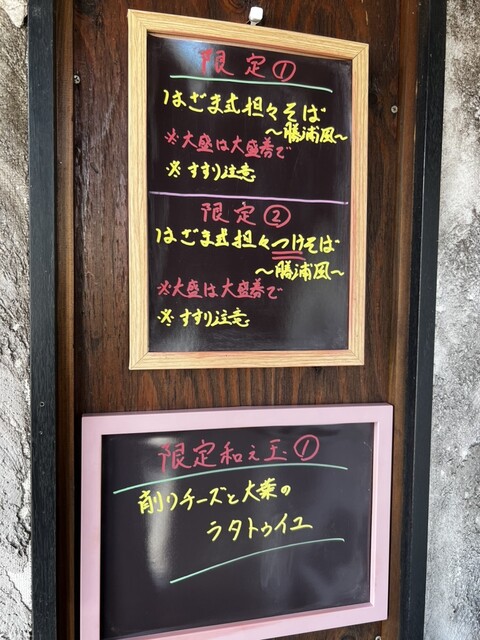 限定①
はざま式担々そば
〜勝浦風〜
※大盛は大盛券で
※すすり注意
限定②
はざま式担々つけそば
〜勝浦風〜
※大盛は大盛券で
※すすり注意
限定和え玉①
削りチーズと大葉の
ラタトゥイユ